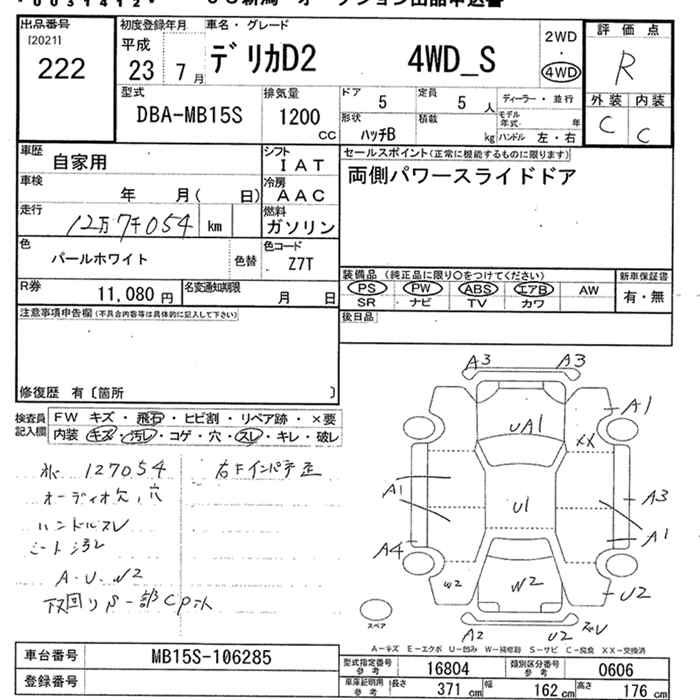 *0031412*
出品番号
[2021]
222
初度登録年月
平成
23 7月
車名・グレード
デリカD2 4WD_S
2WD
・
4WD
評価点
R
外装 内装
C C
型式
DBA-MB15S
排気量
1200
CC
ドア
5
定員
5 人
ディーラー・並行
形状
ハッチB
積載
kg
モデル年式 年
ハンドル 左・右
車歴
自家用
シフト
IAT
セールスポイント(正常に機能するものに限ります)
両側パワースライドドア
車検
年 月( 日)
冷房
AAC
走行
12万7千054 km
燃料
ガソリン
色
パールホワイト
色替
色コード
Z7T
R券
11,080 円
名変通知期限
月 日
装備品 (純正品に限り○をつけてください)
PS PW ABS エアB AW
SR ナビ TV カワ
新車保証書
有・無
注意事項申告欄(不具合内容等は具体的に記入して下さい)
後日品
修復歴 有〔箇所 〕
検査員
記入欄
FW キズ・飛石・ヒビ割・リペア跡・×要
内装 キズ・汚レ・コゲ・穴・スレ・キレ・破レ
127054
オーディオ欠,穴
ハンドルスレ
シート汚レ
A・U・W2
右Fインパネ歪
A3 A3
A1
UA1
XX
A1
U1
A3
A4
A1
W2
W2
U2
A2
U2
スペア
A-キズ E-エクボ U-凹み W-補修跡 S-サビ C-腐食 XX-交換済
車台番号
MB15S-106285
登録番号
型式指定番号
参考
16804
類別区分番号
参考
0606
車庫証明用
参考
長さ
371 cm
幅
162 cm
高さ
176 cm